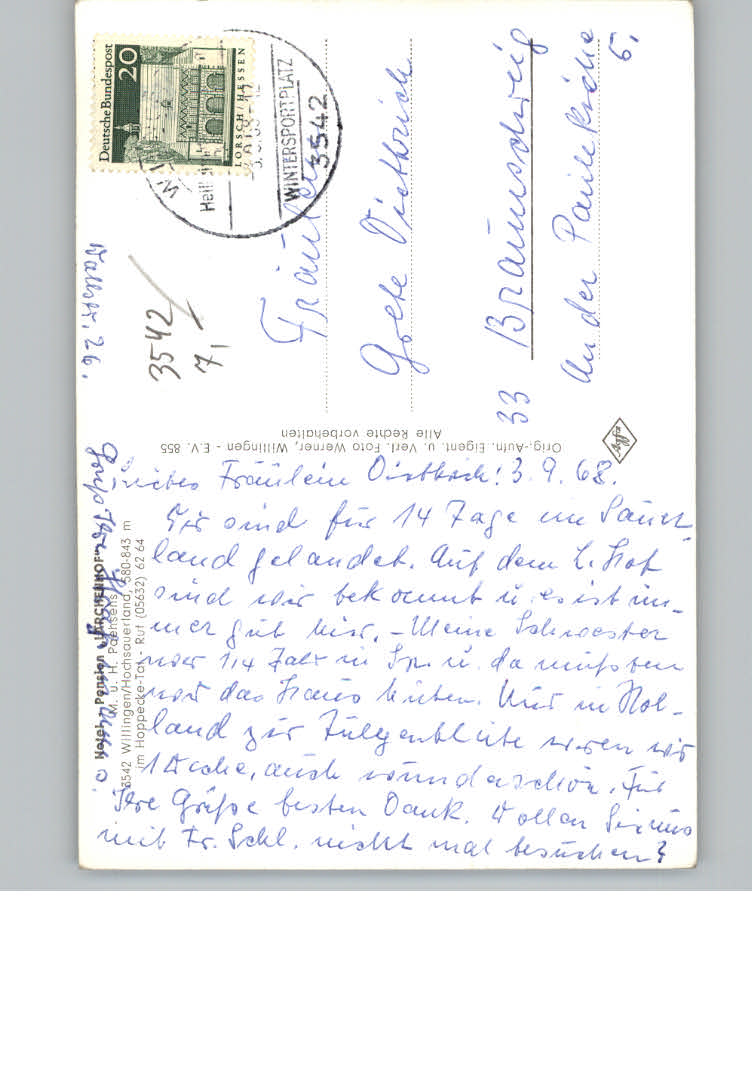 Deutsche Bundespost
20
LORSCH/HESSEN
WINTERSPORTPLATZ
3542
Wallstr. 26.
3542
7,
Fräulein
Grete Dietbrich
33 Braunschweig
An der Paulikirche
5,
Orig.-Aufn. Eigent. u. Verl. Foto Werner, Willingen - E.V. 855
Alle Rechte vorbehalten
Hotel - Pension „LÄRCHENHOF"
M. u. H. Paehsens
3542 Willingen/Hochsauerland, 580-843 m
im Hoppecke-Tal - Ruf (05632) 62 64
Liebes Fräulein 3.9.68.
Wir sind für 14 Tage im Sauer-
land gelandet. Auf dem L. Hof
sind wir bekannt u. es ist im-
mer gut hier. - Meine Schwester
war 1/4 Jahr in Sp. u. da mußten
wir das Haus hüten. Nur in Hol-
land zur Tulpenblüte waren wir
1 Woche, auch wunderschön. Für
Ihre Grüße besten Dank. Wollen Sie uns
mit Fr. Schl. nicht mal besuchen?